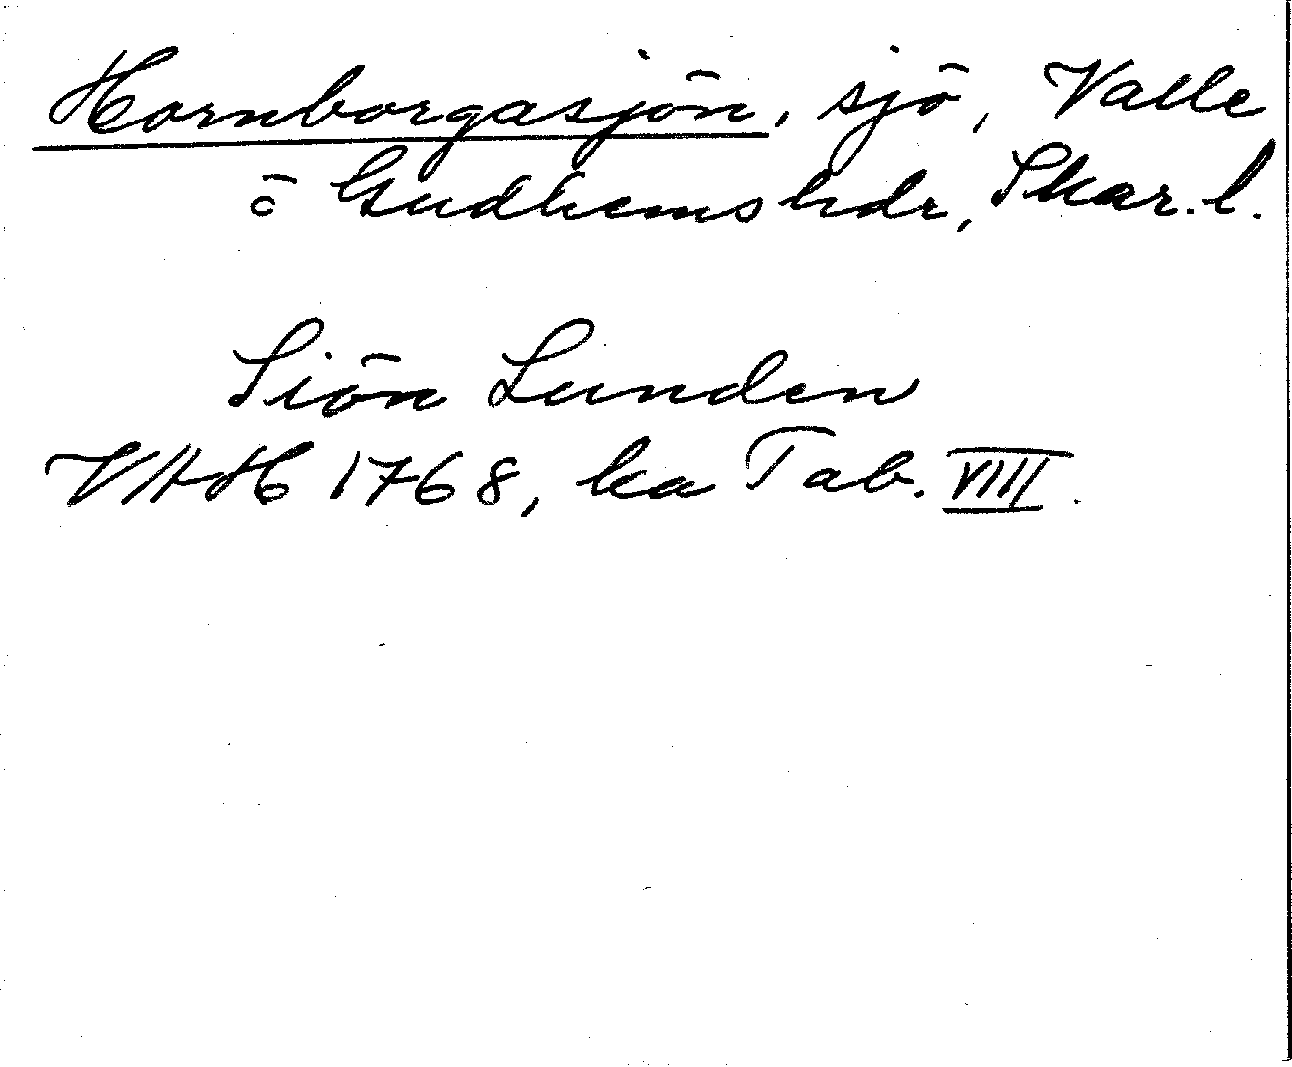 Hornborgasjön, sjö, Valle
o Gudhems hdr, Skar. l.
Siön Lunden
VAH 1768, ka Tab. VIII.